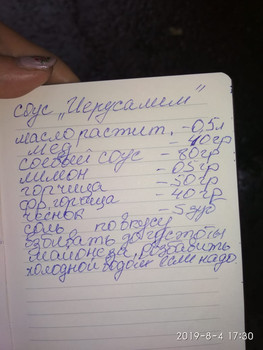 соус „Иерусалим"
масло растит. - 0,5 л
мёд - 40 гр
соевый соус - 80 гр
лимон - 0,5 гр
горчица - 50 гр
фр. горчица - 40 гр
чеснок - 5 зуб
соль по вкусу
взбивать до густоты
майонеза, разбавить
холодной водой если надо
2019-8-4 17:30